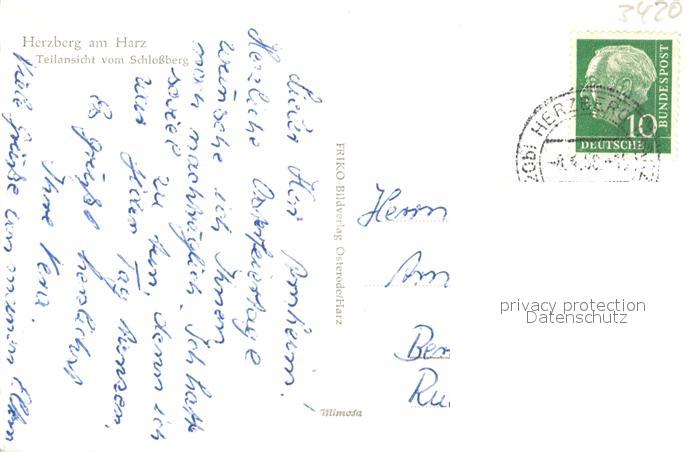 3420
Herzberg am Harz
Teilansicht vom Schloßberg
Lieber Herr Arnheim!
Herzliche Osterfeiertage
wünsche ich Ihnen
noch nachträglich. Ich hatte
soviel zu tun, denn ich
nur Tag
Es grüßt herzlichst
Ihre
Viele Grüße von meinen Eltern
FRIKO-Bildverlag Osterode/Harz
Mimosa
Herrn
Arn
Ber
Ru
HERZBERG
10
DEUTSCHE
BUNDESPOST
privacy protection
Datenschutz